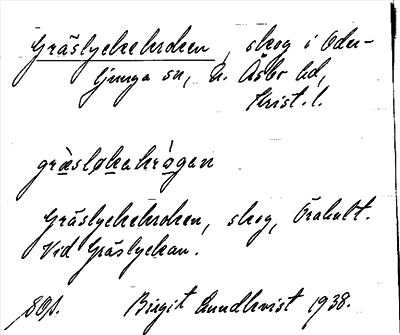 Gräslyckekroken, skog i Oder-
ljunga sn, N. Åsbo hd,
Krist. l.
gràsløkakrògan
Gräslyckekroken, skog, Örahult.
Vid Gräslyckan.
Birgit Lundkvist 1938.